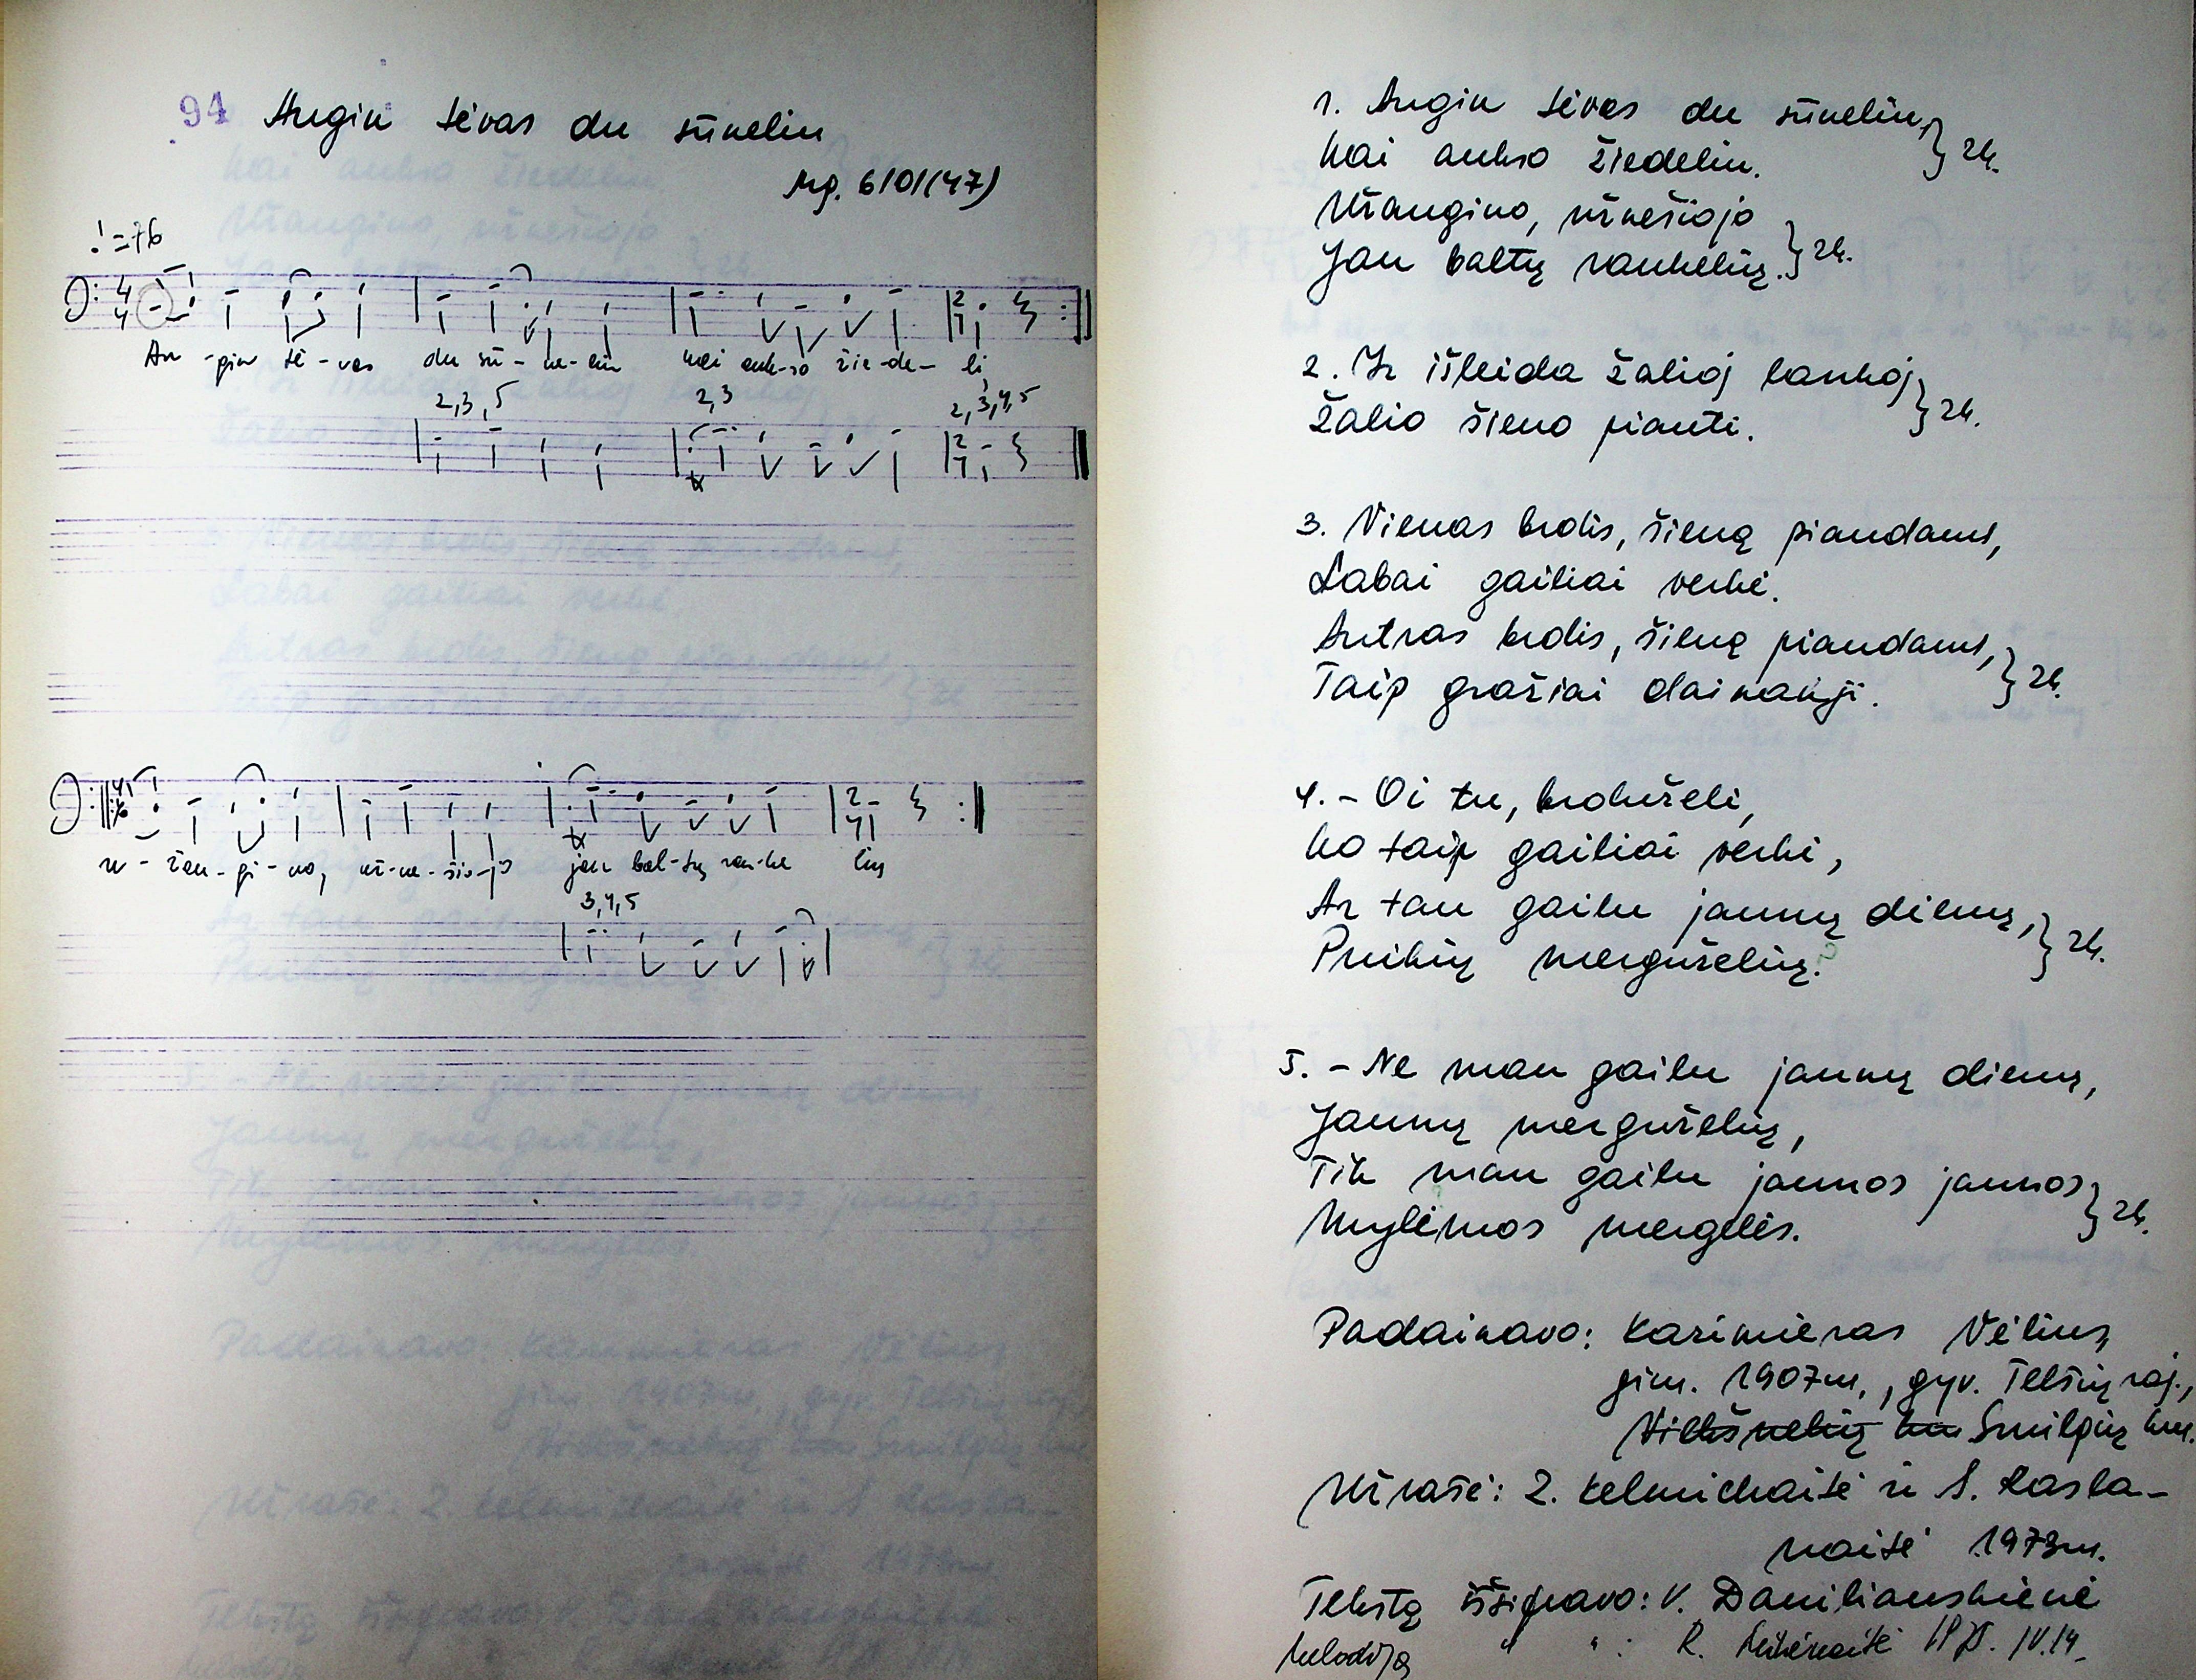 94 Augin tėvas du sūneliu
Mg. 6101(47)
♩=76
4
4
Au-gin tė-vas du sū-ne-liu kai auk-so žie-de-li
2,3,5 2,3 2,3,4,5
u-žau-gi-no, už-ne-šio-jo jau bal-tų ran-ke lių
3,4,5
1. Augin tėvas du sūneliu, } 2k.
Kai aukso žiedeliu.
Užaugino, užnešiojo } 2k.
Jau baltų rankelių.
2. Ir išleida žalioj lankoj } 2k.
Žalio šieno piauti.
3. Vienas brolis, šieną piaudams,
Labai gailiai verkė.
Antras brolis, šieną piaudams, } 2k.
Taip gražiai dainavo.
4. - Oi tu, broluželi,
Ko taip gailiai verki,
Ar tau gailu jaunų dienų, } 2k.
Puikių mergužėlių?
5. - Ne man gailu jaunų dienų,
Jaunų mergužėlių,
Tik man gailu jaunos jaunos } 2k.
Mylimos mergelės.
Padainavo: Kazimieras Vėlius,
gim. 1907m., gyv. Telšių raj.,
Smilgių km.
Užrašė: Z. Kelmickaitė ir S.
naitė 1973m.
Tekstą išsifravo: V. Daniliauskienė
Melodiją " " : R. IV.14.